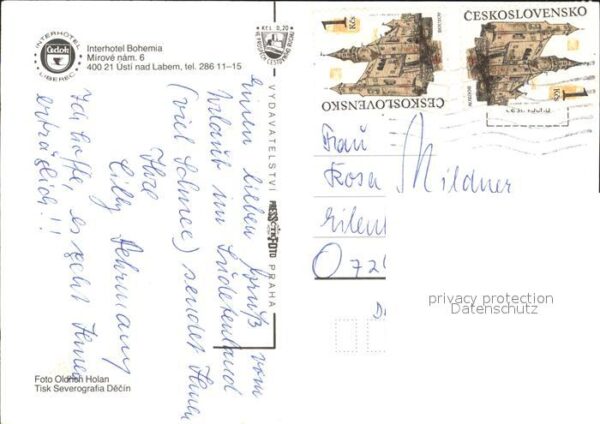 INTERHOTEL
Čedok
LIBEREC
Interhotel Bohemia
Mírové nám. 6
400 21 Ústí nad Labem, tel. 286 11–15
Kčs 0,20
VE PROSPĚCH ČESTOVNÍHO RUCHU
VYDAVATELSTVÍ
PRESSFOTO
PRAHA
einen lieben Gruß vom
Urlaub im Sudetenland
(viel Schnee) sendet Ihnen
Ihre
Cilly
Ich hoffe, es geht Ihnen
erträglich!!
Foto Oldřich Holan
Tisk Severografia Děčín
1 Kčs
BOUZOV
ČESKOSLOVENSKO
ČESKOSLOVENSKO
BOUZOV
1 Kčs
Frau
Rosa Mildner
072
privacy protection
Datenschutz